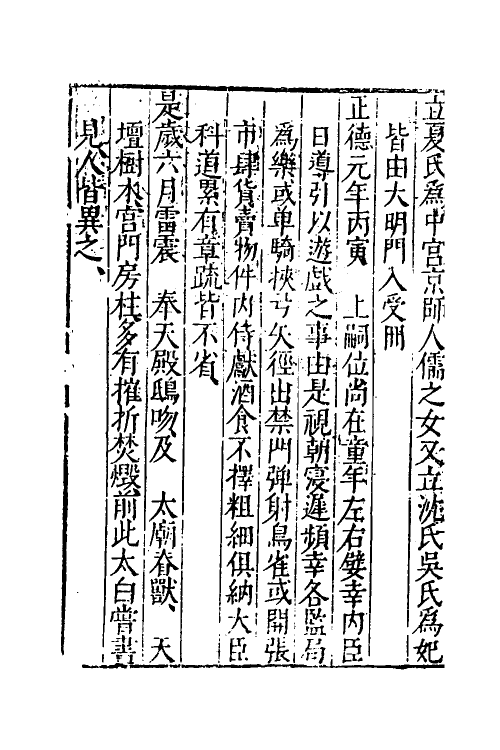 立夏氏爲中宮京師人儒之女又立沈氏吳氏爲妃
皆由大明門入受冊
正德元年丙寅　上嗣位尚在童年左右嬖幸內臣
日導引以遊戲之事由是視朝寖遲頻幸各監局
爲樂或单騎挾弓矢徑出禁門彈射鳥雀或開張
市肆貨賣物件內侍獻酒食不擇粗細俱納大臣
科道累有章疏皆不省
是歲六月雷震　奉天殿鴟吻及　太廟脊獸、天
壇樹木宮門房柱多有摧折焚燬前此太白嘗晝
見人皆異之、